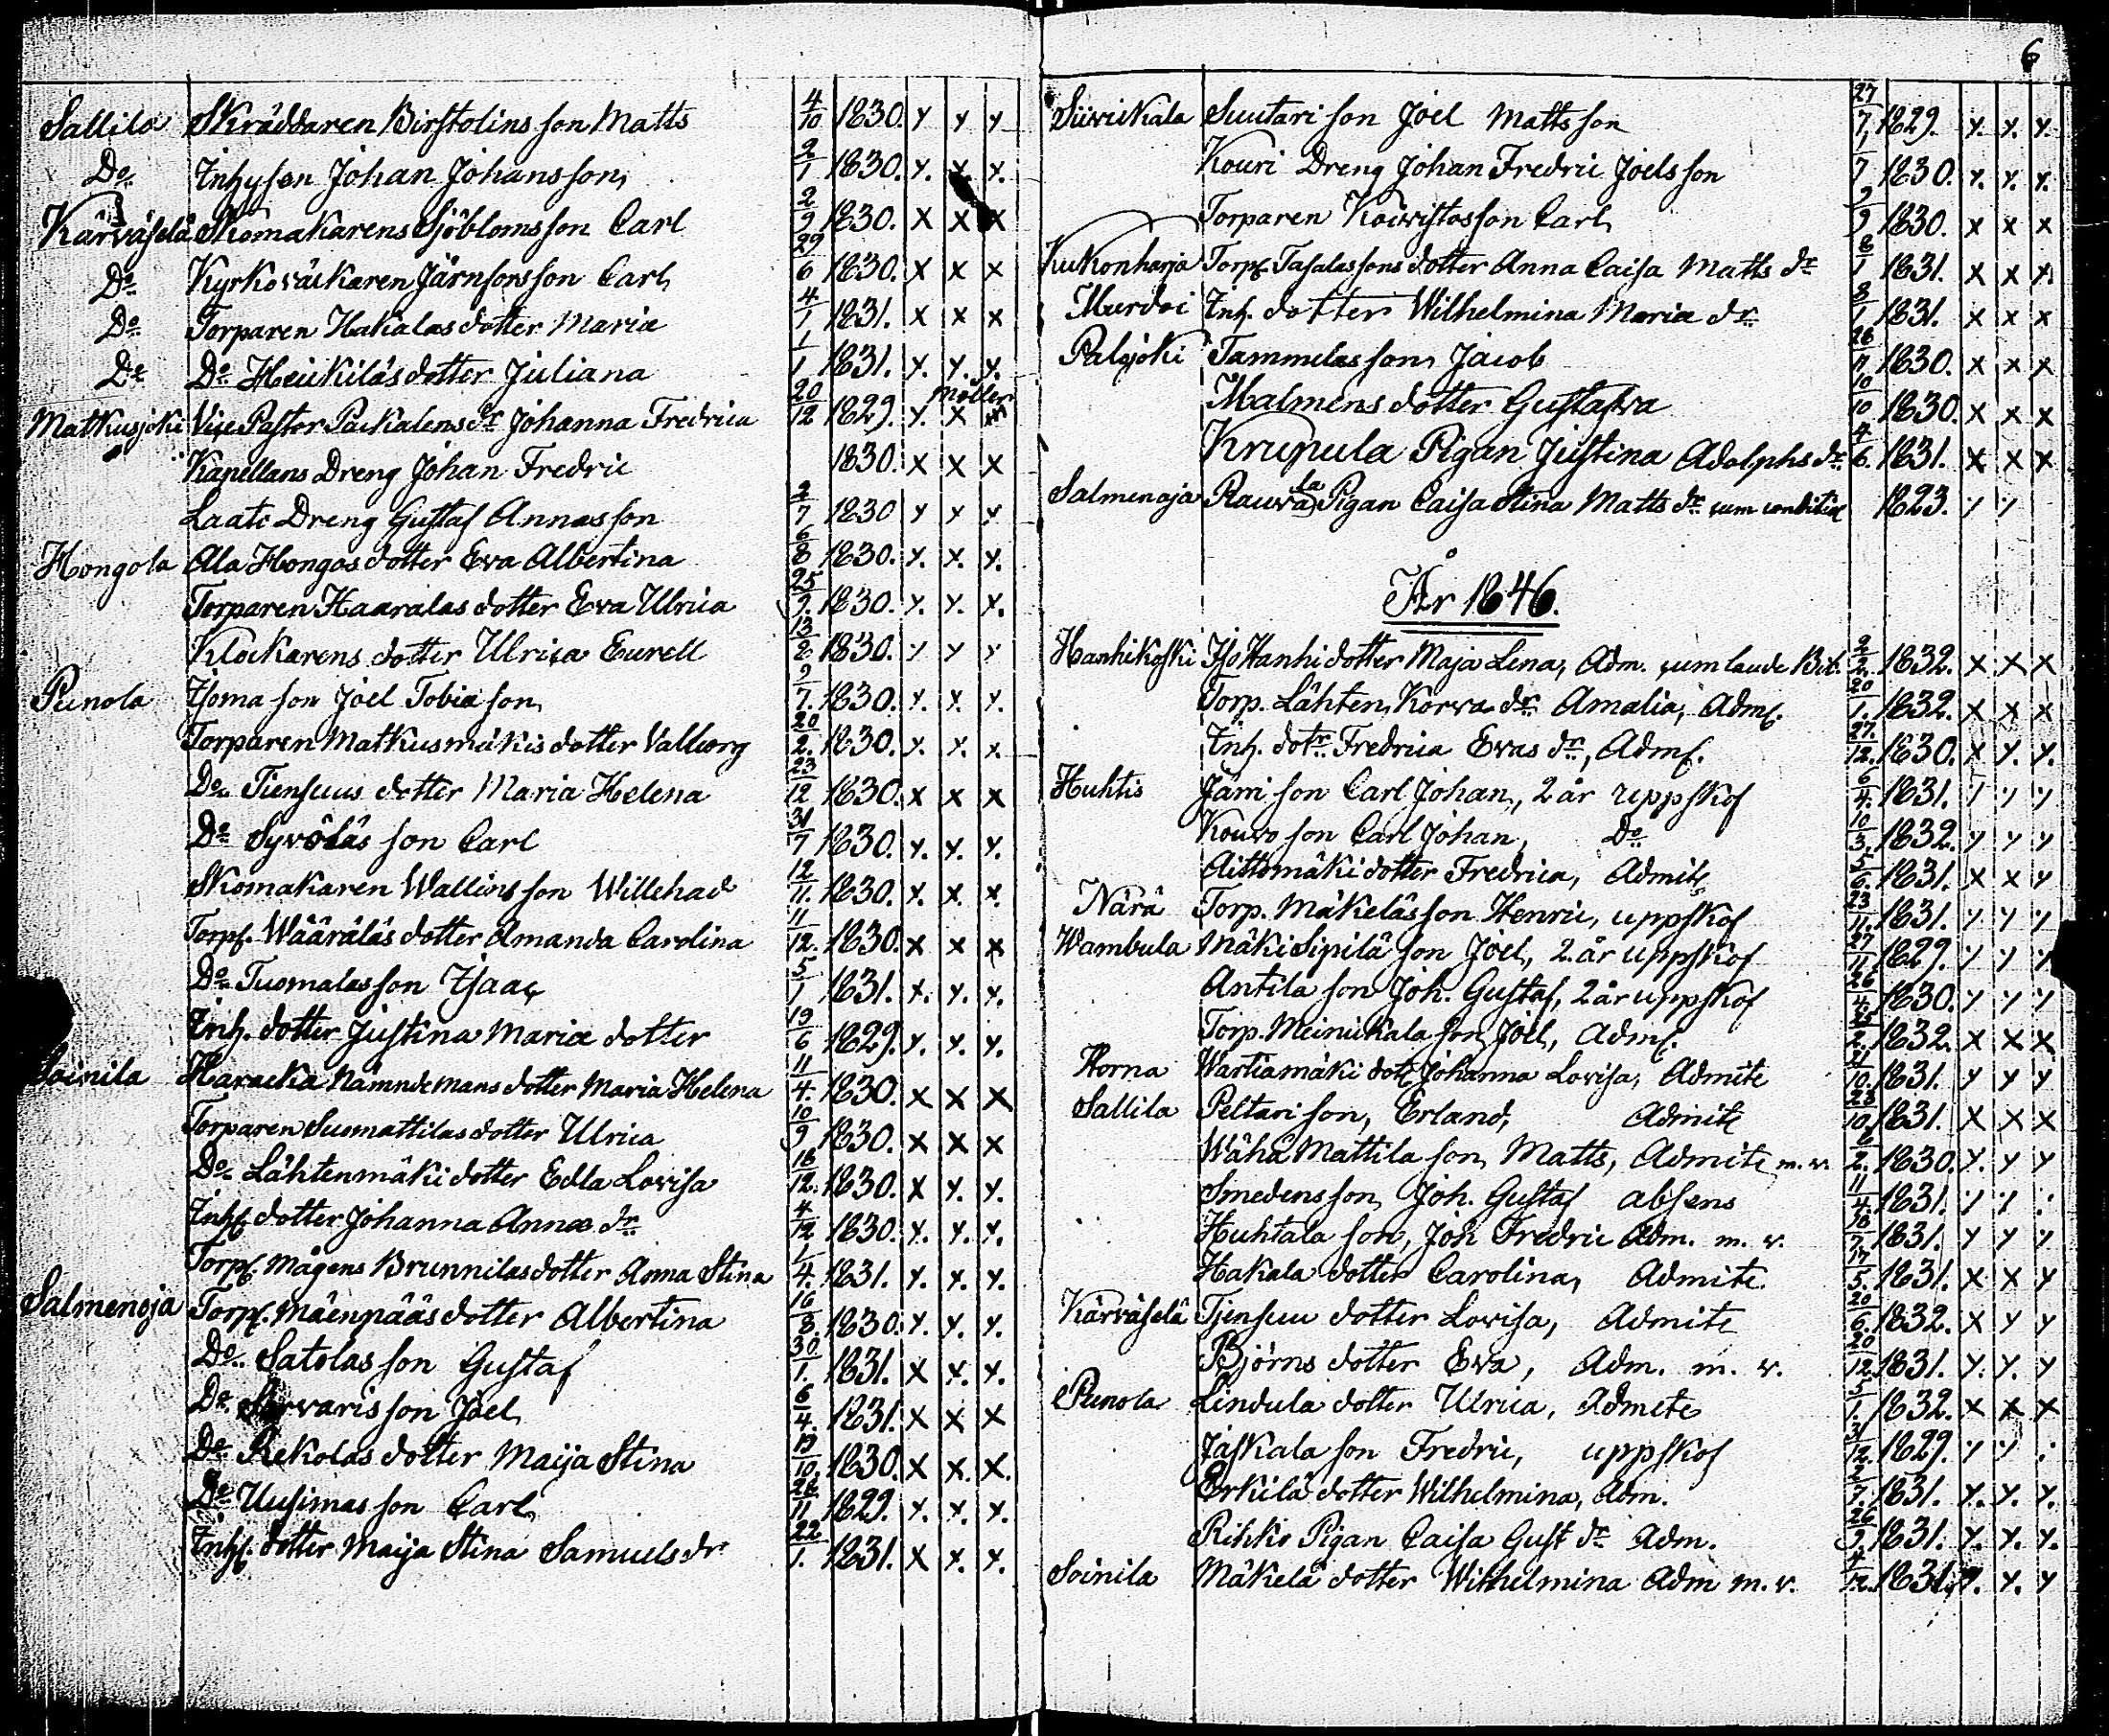 Sallila Skräddaren Birstolins son Matts 4/10 1830. y y y
Do Inhyses Johan Johansson 2/1 1830. y. x. y.
Kärväselä Skomakarens Sjöbloms son Carl 2/9 1830. x x x
Do Kyrkoväkaren Järnfors son Carl 29/6 1830. x x x
Do Torparen Hakalas dotter Maria 4/1 1831. x x x
Do Do Heikiläs dotter Juliana 1/1 1831. y. y. y.
Matkusjoki Vice Pastor Packalens dr Johanna Fredrica 20/12 1829. y. x möller
Kapellans Dreng Johan Fredric 1830. x x x
Laati Dreng Gustaf Annasson 2/7 1830 y y y
Hongola Ala Hongos dotter Eva Albertina 6/8 1830. y. x. y.
Torparen Haaralas dotter Eva Ulrica 25/9. 1830. y. y. y.
Klockarens dotter Ulrica Eurell 13/2. 1830. y y y
Punola Isoma son Joel Tobiason 9/7. 1830. y. y. y.
Torparen Matkusmäkis dotter Valborg 20/2. 1830. y. x. x
Do Tiensuus dotter Maria Helena 23/12 1830. x x x
Do Syvöläs son Carl 31/7 1830. y. y. y.
Skomakaren Wallins son Willehad 12/11. 1830. y. x. x.
Torp. Wääräläs dotter Amanda Carolina 11/12. 1830. x x x
Do Tuomalas son Isaac 5/1 1831. y. y. y.
Inh. dotter Justina Maria dotter 19/6 1829. y. y. y.
Soinila Haracka Nämndemans dotter Maria Helena 11/4. 1830. x x x
Torparen Suomattilas dotter Ulrica 10/9 1830. x x x
Do Lähtenmäki dotter Edla Lovisa 18/12. 1830. x y. y.
Inh. dotter Johanna Annæ dr 4/12 1830. y. y. y.
Torp. Mågens Brunnilas dotter Anna Stina 1/4. 1831. y. y. y.
Salmenoja Torp. Mäenpääs dotter Albertina 16/8. 1830. y. y. y.
Do Satolas son Gustaf 30/1. 1831. x y. y.
Do Sorvaris son Joel 6/4. 1831. x x x
Do Rekolas dotter Maija Stina 19/10. 1830. x x. x.
Do Uusimas son Carl 28/11 1829. y. y. y.
Inh. dotter Maija Stina Samuels dr 22/1. 1831. x y. y.
6
Siivickala Suutari son Joel Mattsson 27/7 1829. y. y. y.
Kouri Dreng Johan Fredric Joelsson 1/7 1830. y. y. y.
Torparen Koivistos son Carl 9/9 1830. x x x
Kukonharja Torp. Tasalas sons dotter Anna Caisa Matts dr 8/1 1831. x x y.
Murdoi Inh. dotter Wilhelmina Maria dr 8/1 1831. x x x
Palojoki Tammelas son Jacob 26/11 1830. x x x
Malmens dotter Gustafva 10/10 1830. x x x
Krupula Pigan Justina Adolphs dr 4/6. 1831. x x x
Salmenoja Rauvala Pigan Caisa Stina Matts dr cum conditione 1823. y y
År 1846.
Hanhikoski Iso Hanhi dotter Maja Lena, Adm. cum laude Bib. 2/2. 1832. x x x
Torp. Lähten Korva dr Amalia, Adm. 20/1. 1832. x x x
Inh. dotr Fredrica Evas dr, Adm. 27./12. 1830. x y. y.
Huhtis Jäni son Carl Johan, 2 år uppskof 6/4. 1831. y y y
Kouvo son Carl Johan, Do 10/3. 1832. y y y
Aittomäki dotter Fredrica, Admite 5/6. 1831. x x y
Nära Torp. Mäkeläs son Henric, uppskof 23/11. 1831. y y y
Wambula Mäki Sipilä son Joel, 2 år uppskof 27/11. 1829. y y y
Antila son Joh. Gustaf, 2 år uppskof 26/4. 1830. y y y
Torp. Meinickala son Joel, Adm. 1832. x x x
Horna Wartiamäki dotr Johanna Lovisa, Admite 21/10. 1831. y y y
Sallila Peltari son, Erland, Admite 23/10. 1831. x x x
Wähä Mattila son Matts, Admite m. v. 6/2. 1830. y. y y
Smedens son, Joh. Gustaf absens 11/4. 1831. y y .
Huhtala son, Joh Fredric Adm. m. v. 18/7. 1831. y y y
Hakala dotter Carolina, Admite. 17/5. 1831. x x y
Kärväselä Tjensuu dotter Lovisa, Admite 20/6. 1832. x y y
Björns dotter Eva, Adm. m. v. 20/12. 1831. y. y. y
Punola Lindula dotter Ulrica, Admite 5/1. 1832. x x x
Jaskala son Fredric, uppskof 31/12. 1829. y y .
Erkilä dotter Wilhelmina, Adm. 2/7. 1831. y. y. y.
Rihko Pigan Caisa Gust dr Adm. 26/9. 1831. y. y. y.
Soinila Mäkelä dotter Wilhelmina Adm m. v. 4/12. 1831. y. y. y